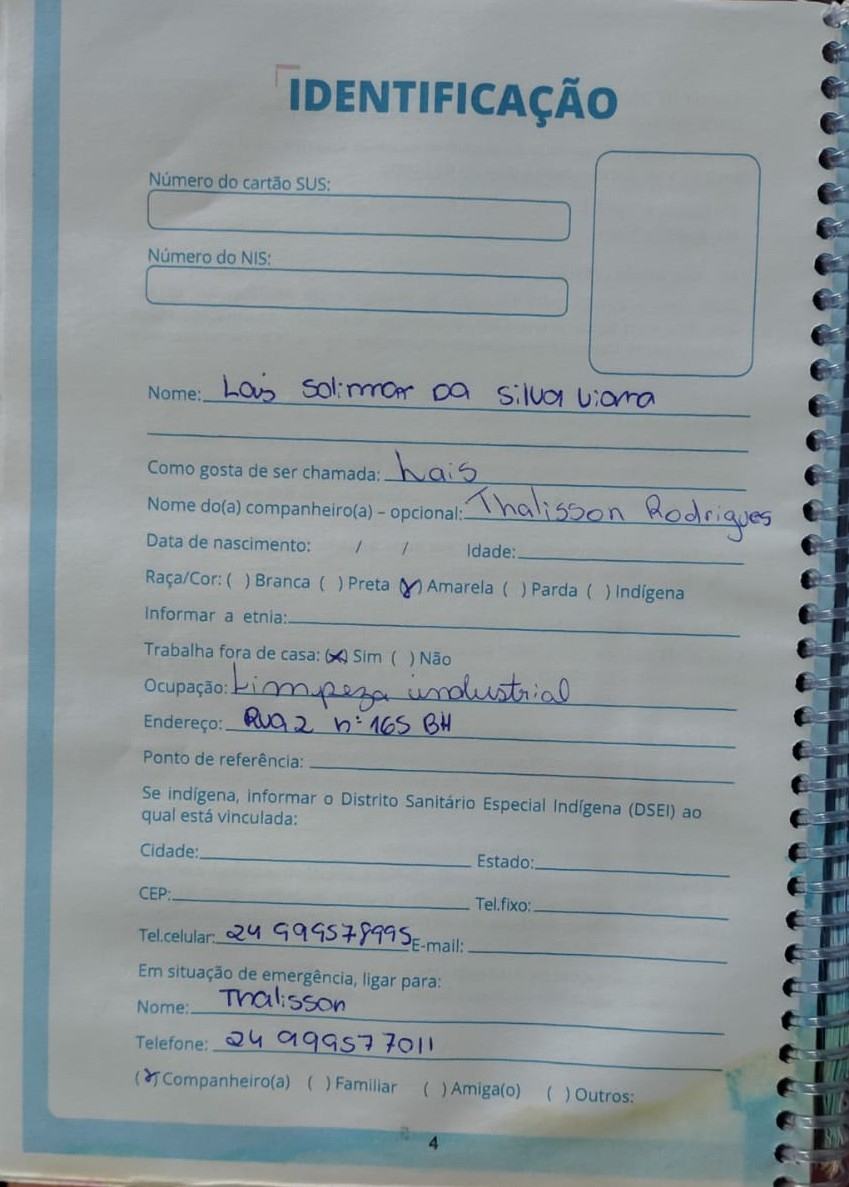 IDENTIFICAÇÃO
Número do cartão SUS:
Número do NIS:
Nome: Lais Solimar DA Silva Viana
Como gosta de ser chamada: Lais
Nome do(a) companheiro(a) – opcional: Thalisson Rodrigues
Data de nascimento: / / Idade:
Raça/Cor: ( ) Branca ( ) Preta (X) Amarela ( ) Parda ( ) Indígena
Informar a etnia:
Trabalha fora de casa: (X) Sim ( ) Não
Ocupação: Limpeza industrial
Endereço: Rua 2 nº 165 BH
Ponto de referência:
Se indígena, informar o Distrito Sanitário Especial Indígena (DSEI) ao
qual está vinculada:
Cidade: Estado:
CEP: Tel.fixo:
Tel.celular: 24 999578995 E-mail:
Em situação de emergência, ligar para:
Nome: Thalisson
Telefone: 24 999577011
(X) Companheiro(a) ( ) Familiar ( ) Amiga(o) ( ) Outros:
4